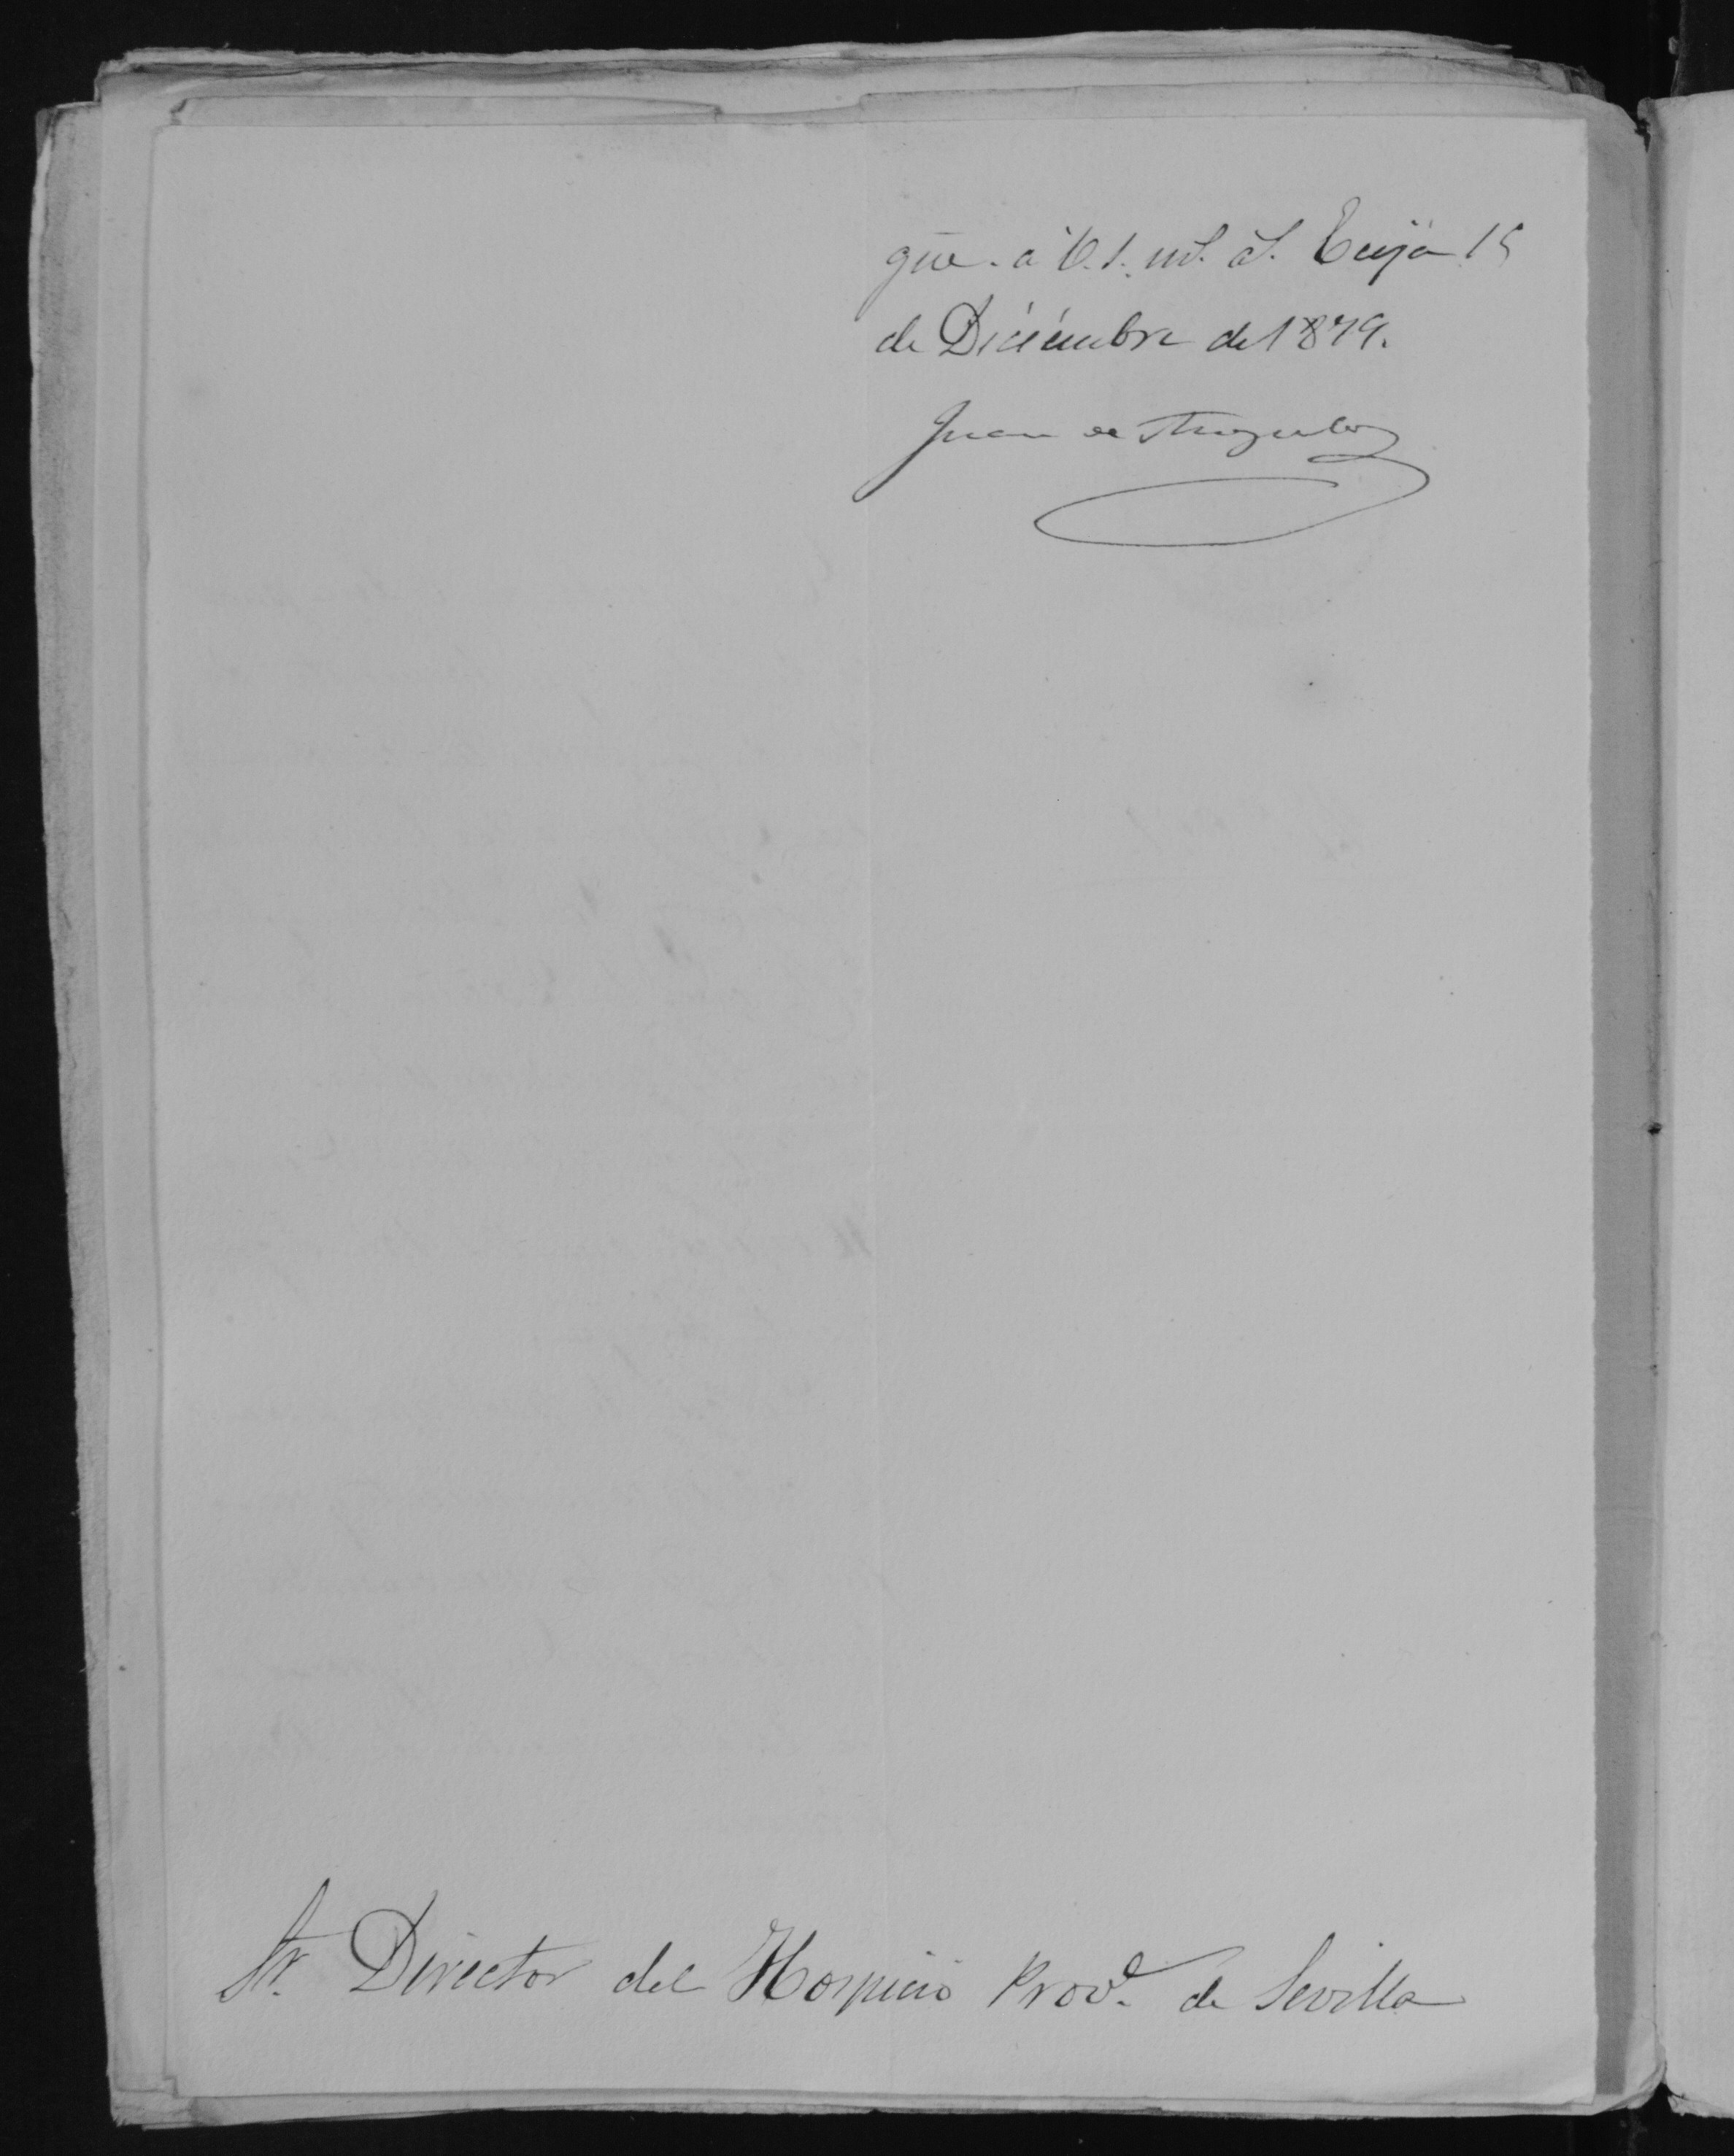 gūe. a V. S. ms. as. Ecija 15
de Diciembre de 1879.
Juan de
Sr. Director del Hospicio Prov.l de Sevilla